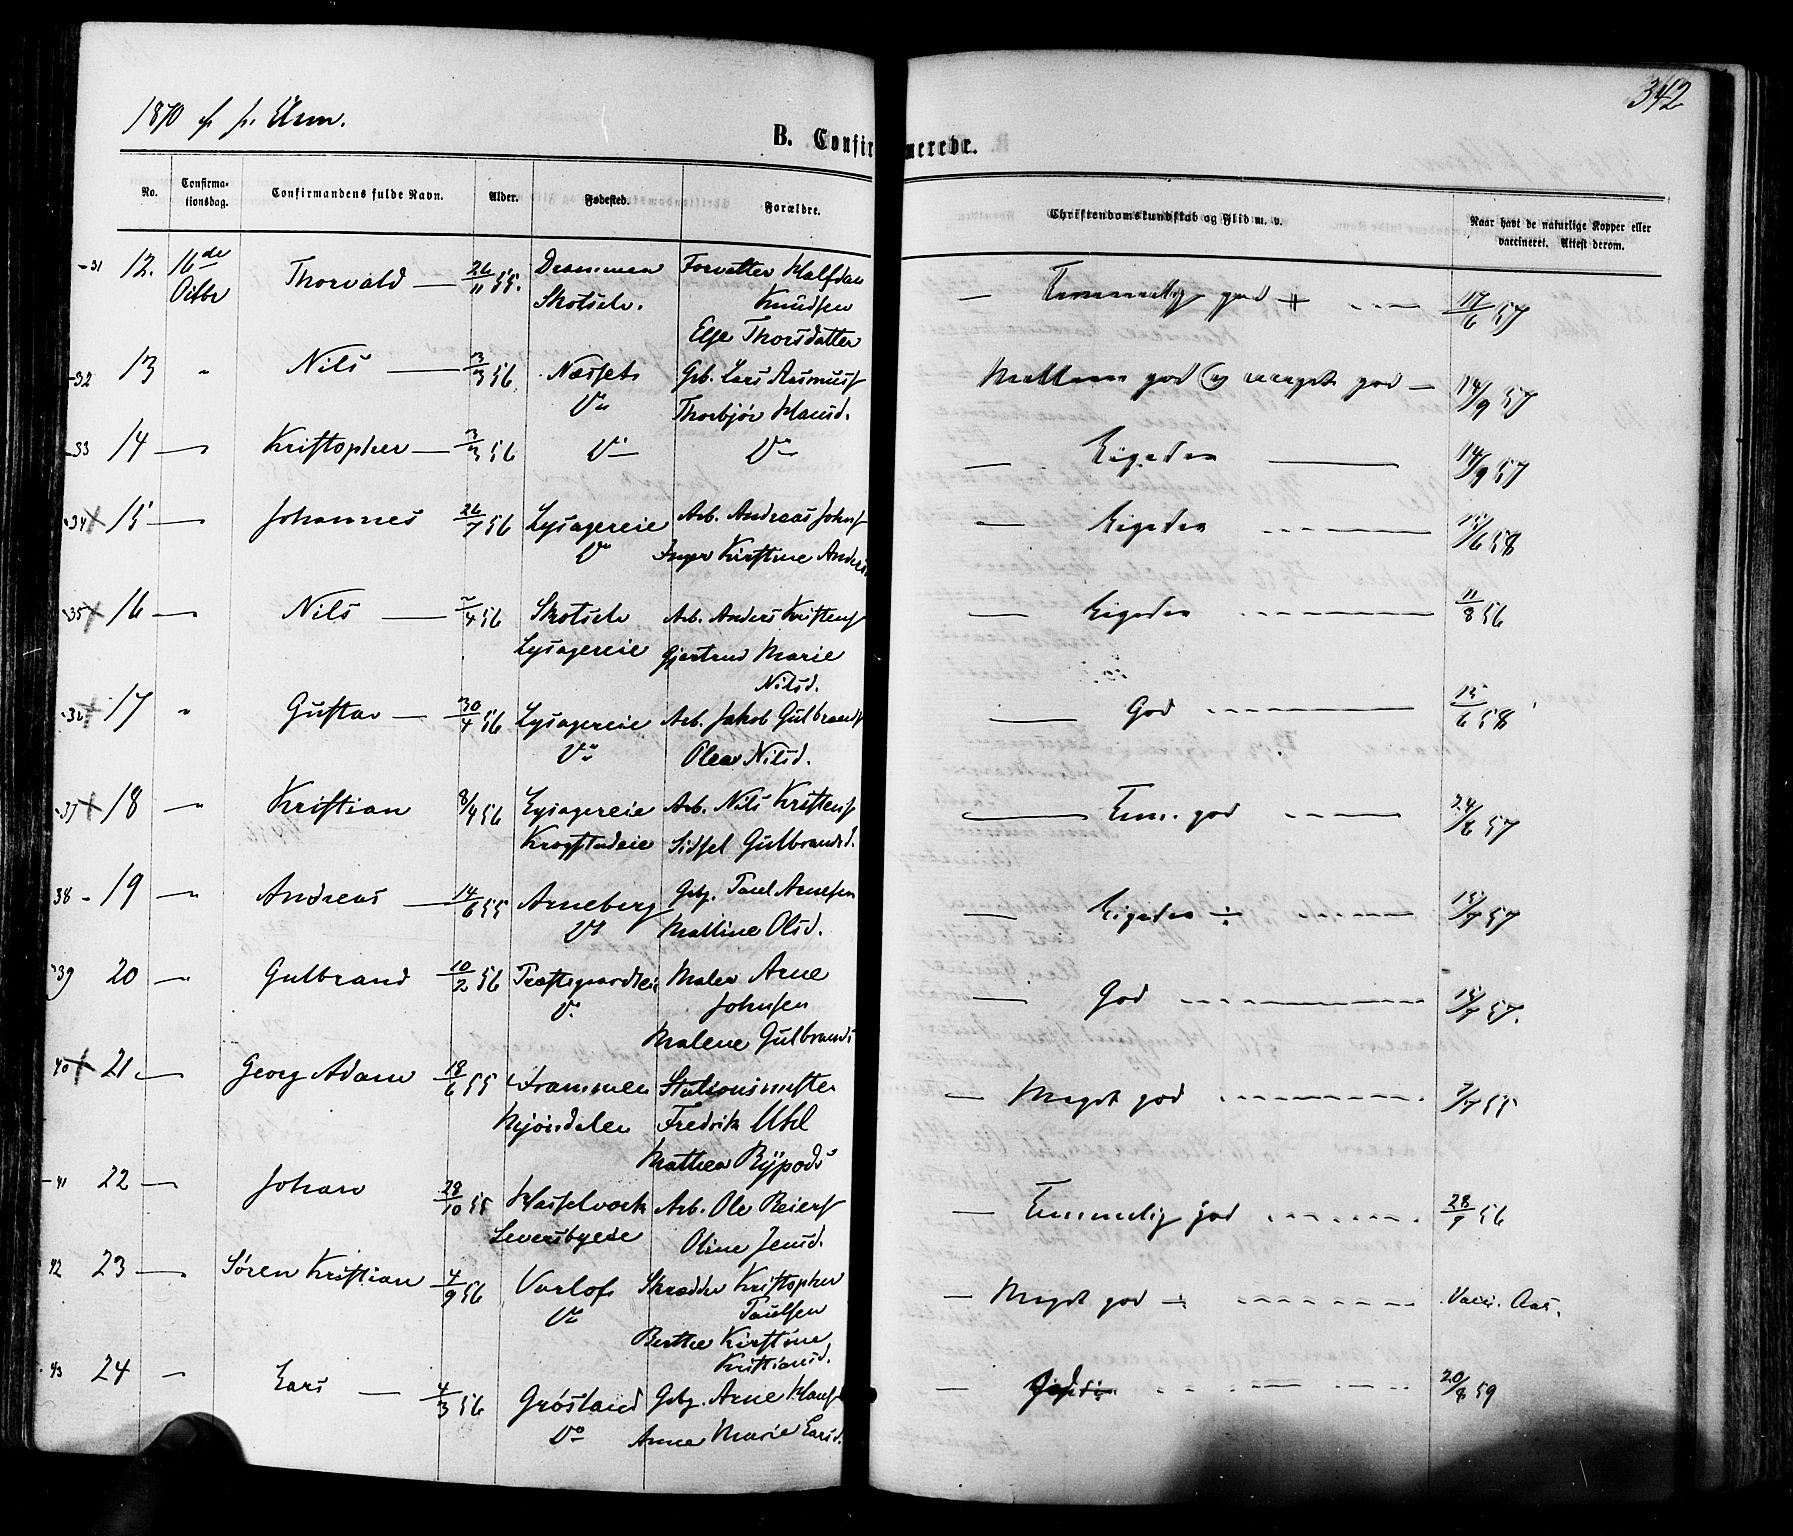 342
1870
B. Confirmerede.
No. Confirma-tionsdag. Confirmandens fulde Navn. Alder. Fødested. Forældre. Christendomskundskab og Flid m. v. Naar havt de naturlige Kopper eller vaccineret. Attest derom.
31 12. 16de Octbr Thorvald — 26/11 55. Drammen Skotselv. Forvalter Halfdan Knudsen Else Thorsdatter — Temmelig god + 17/6 57
32 13 " Nils — 3/3 56 Næsset Do Lars Rasmuss Thorbjør Hansd. Mellem god og meget god — 14/9 57
33 14 — Kristopher — 3/3 56 Do Do — Ligeden — 14/9 57
34 15 — Johannes 26/7 56 Lysagereie Do Arb. Andreas Johns Inger Kirstine Anders — Ligeden 15/6 58
35 16 — Nils — /4 56 Skotselv Lysagereie Arb. Anders Kristens Gjertrud Marie Nilsd. — Ligeden 11/8 56
17 " Gustav — 30/4 56 Lysagereie Do Arb. Jakob Gulbrands Olea Nilsd. — God 15/6 58
37 18 " Kristian 8/4 56 Lysagereie Krogstadeie Arb. Nils Kristens Sidsel Gulbrandsd. — Tem. god 57
38 19 — Andreas — 14/6 55 Arneberg Do Gbr. Paul Arnesen Malline Olsd. — Ligeden ÷ 15/7 57
39 20 — Gulbrand 10/2 56 Præstegaardsei Do Maler Arne Johnsen Malene Gulbrands — God 15/7 57.
40 21 — Georg Adam 18/6 55 Drammen Mjøndalen Stationsmester Fredrik Uhl Mathea Rypods — Meget god 7/7 55
41 22 — Johan 28/10 55 Hasselvork Leversbyeie Arb. Ole Reiers Oline Jensd. — Temmelig god 28/9 56
42 23 — Søren Kristian 4/9 56 Varlo Do Skrædder Kristopher Paulsen Berthe Kirstine Kristiansd. — Meget god ÷ Vacc. Aas.
43 24 " Lars — 4/3 56 Grøsland Do Gbr. Arne Hans Anne Marie Larsd. — 20/8 59